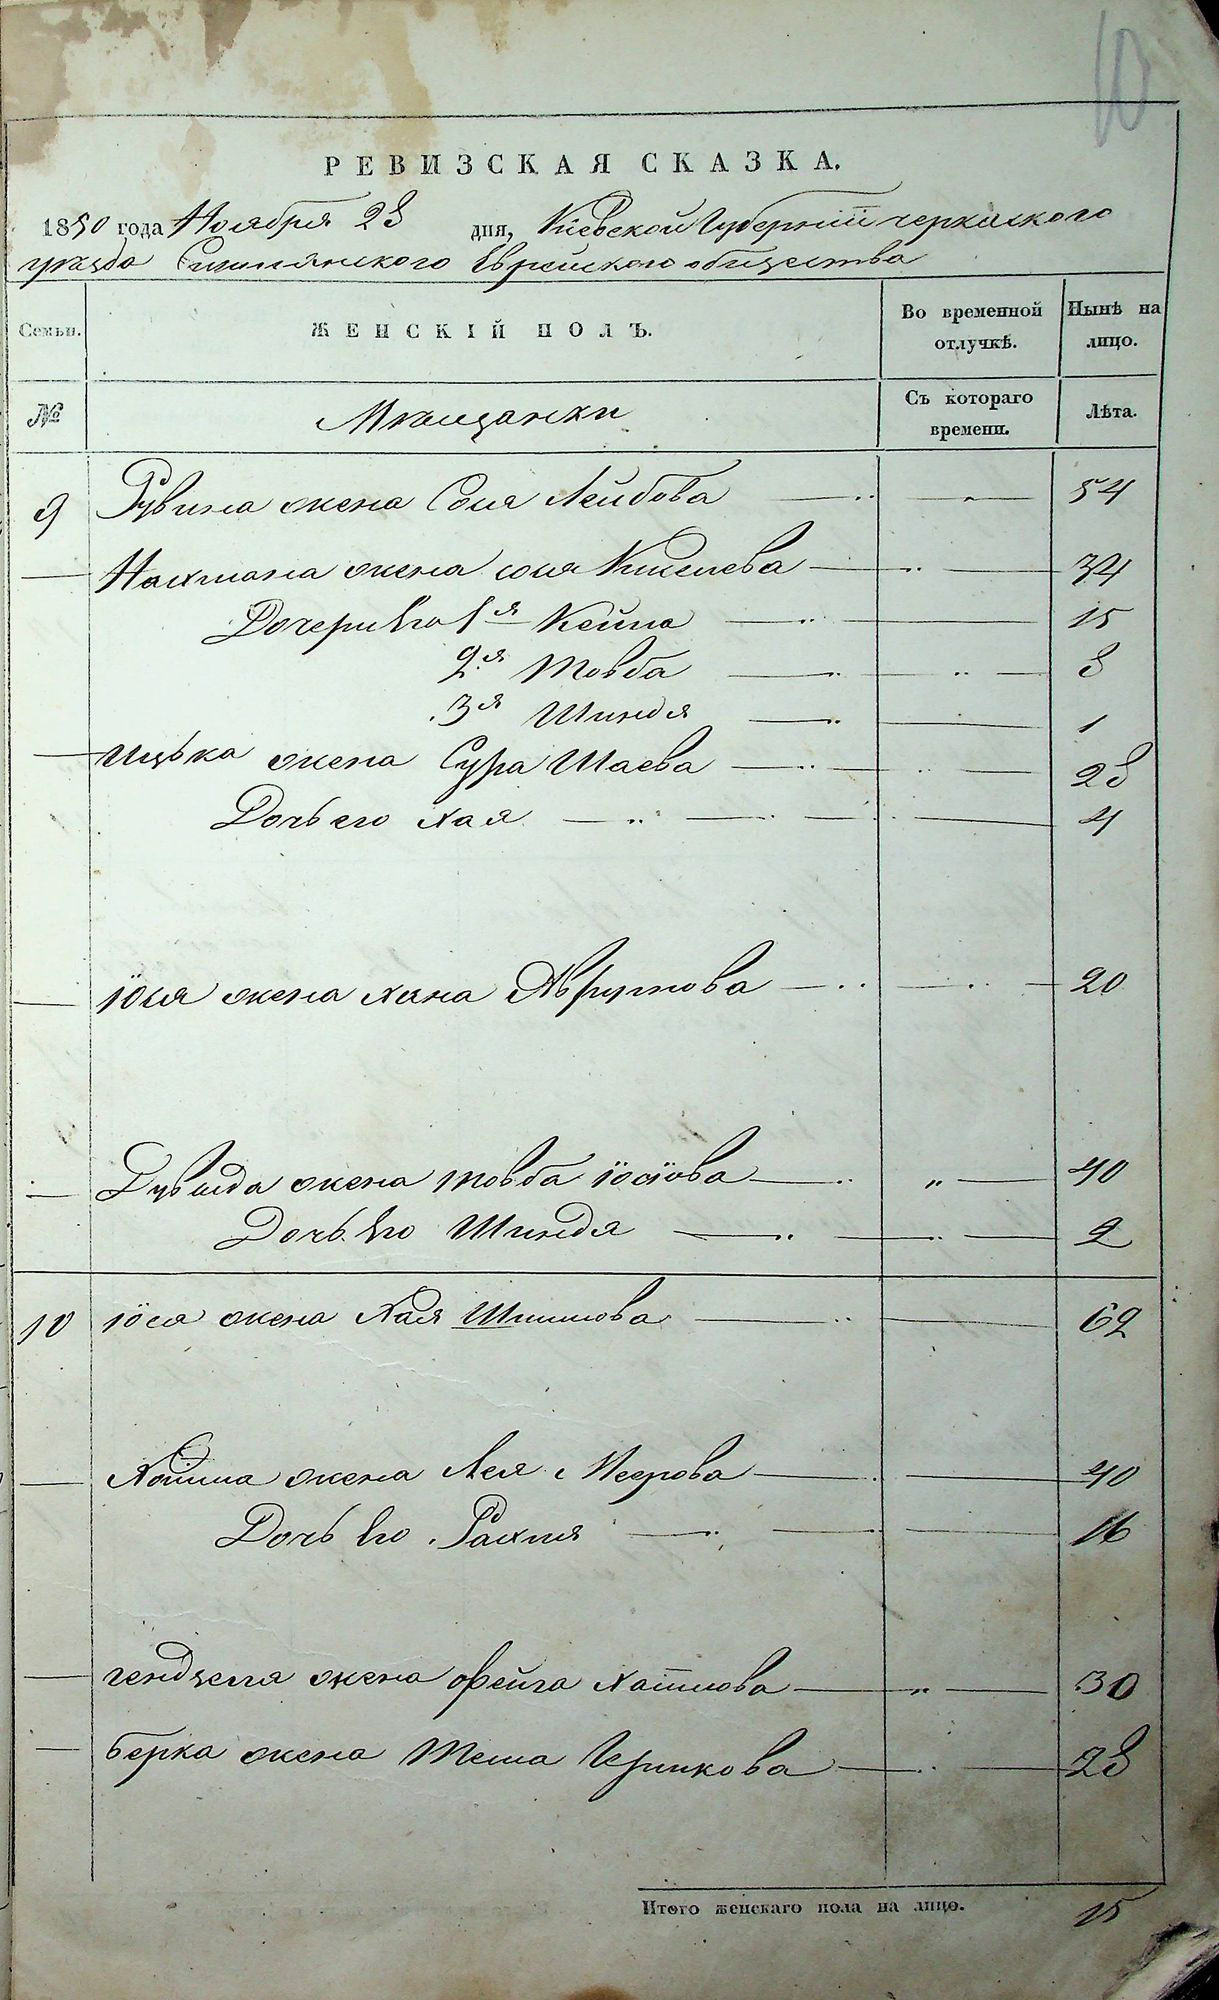 10
РЕВИЗСКАЯ СКАЗКА.
1850 года Ноября 28 дня, Киевской Губернии черкаского
уѣзда Смилянского Еврейского общества
Семьи. ЖЕНСКІЙ ПОЛЪ. Во временной отлучкѣ. Нынѣ на лицо.
№ Мѣщанки Съ котораго времени. Лѣта.
9 Рувина жена Сося Лейбова — " — 54
— Нахмана жена сося Киселева — " — 34
Дочери его 1я Кейла — " — 15
2я Товба — " — 8
3я Шиндя — " — 1
— Ицька жена Сура Шаева — " — 28
Дочь его Хая — " — 4
— Іося жена Хана Аврумова — " — 20
— Дувида жена товба іосіова — " — 40
Дочь его Шиндя — " — 2
10 іося жена Хая Шимова — " — 62
— Хаіма жена Лея Меерова — 40
Дочь его Рахля — " — 16
— гендзеля жена Фейга Хаімова — " — 30
— берка жена Тема Гершкова — " — 28
Итого женскаго пола на лицо. 15